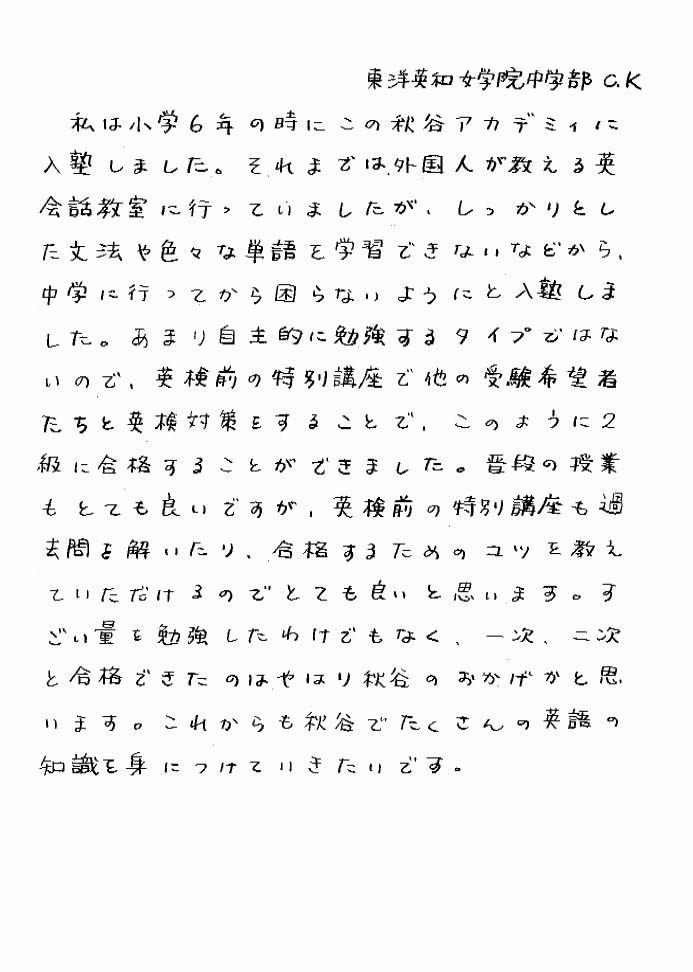 東洋英和女学院中学部 C.K
私は小学6年の時にこの秋谷アカデミィに
入塾しました。それまでは外国人が教える英
会話教室に行っていましたが、しっかりとし
た文法や色々な単語を学習できないなどから、
中学に行ってから困らないようにと入塾しま
した。あまり自主的に勉強するタイプではな
いので、英検前の特別講座で他の受験希望者
たちと英検対策をすることで、このように2
級に合格することができました。普段の授業
もとても良いですが、英検前の特別講座も過
去問を解いたり、合格するためのコツを教え
ていただけるのでとても良いと思います。す
ごい量を勉強したわけでもなく、一次、二次
と合格できたのはやはり秋谷のおかげかと思
います。これからも秋谷でたくさんの英語の
知識を身につけていきたいです。